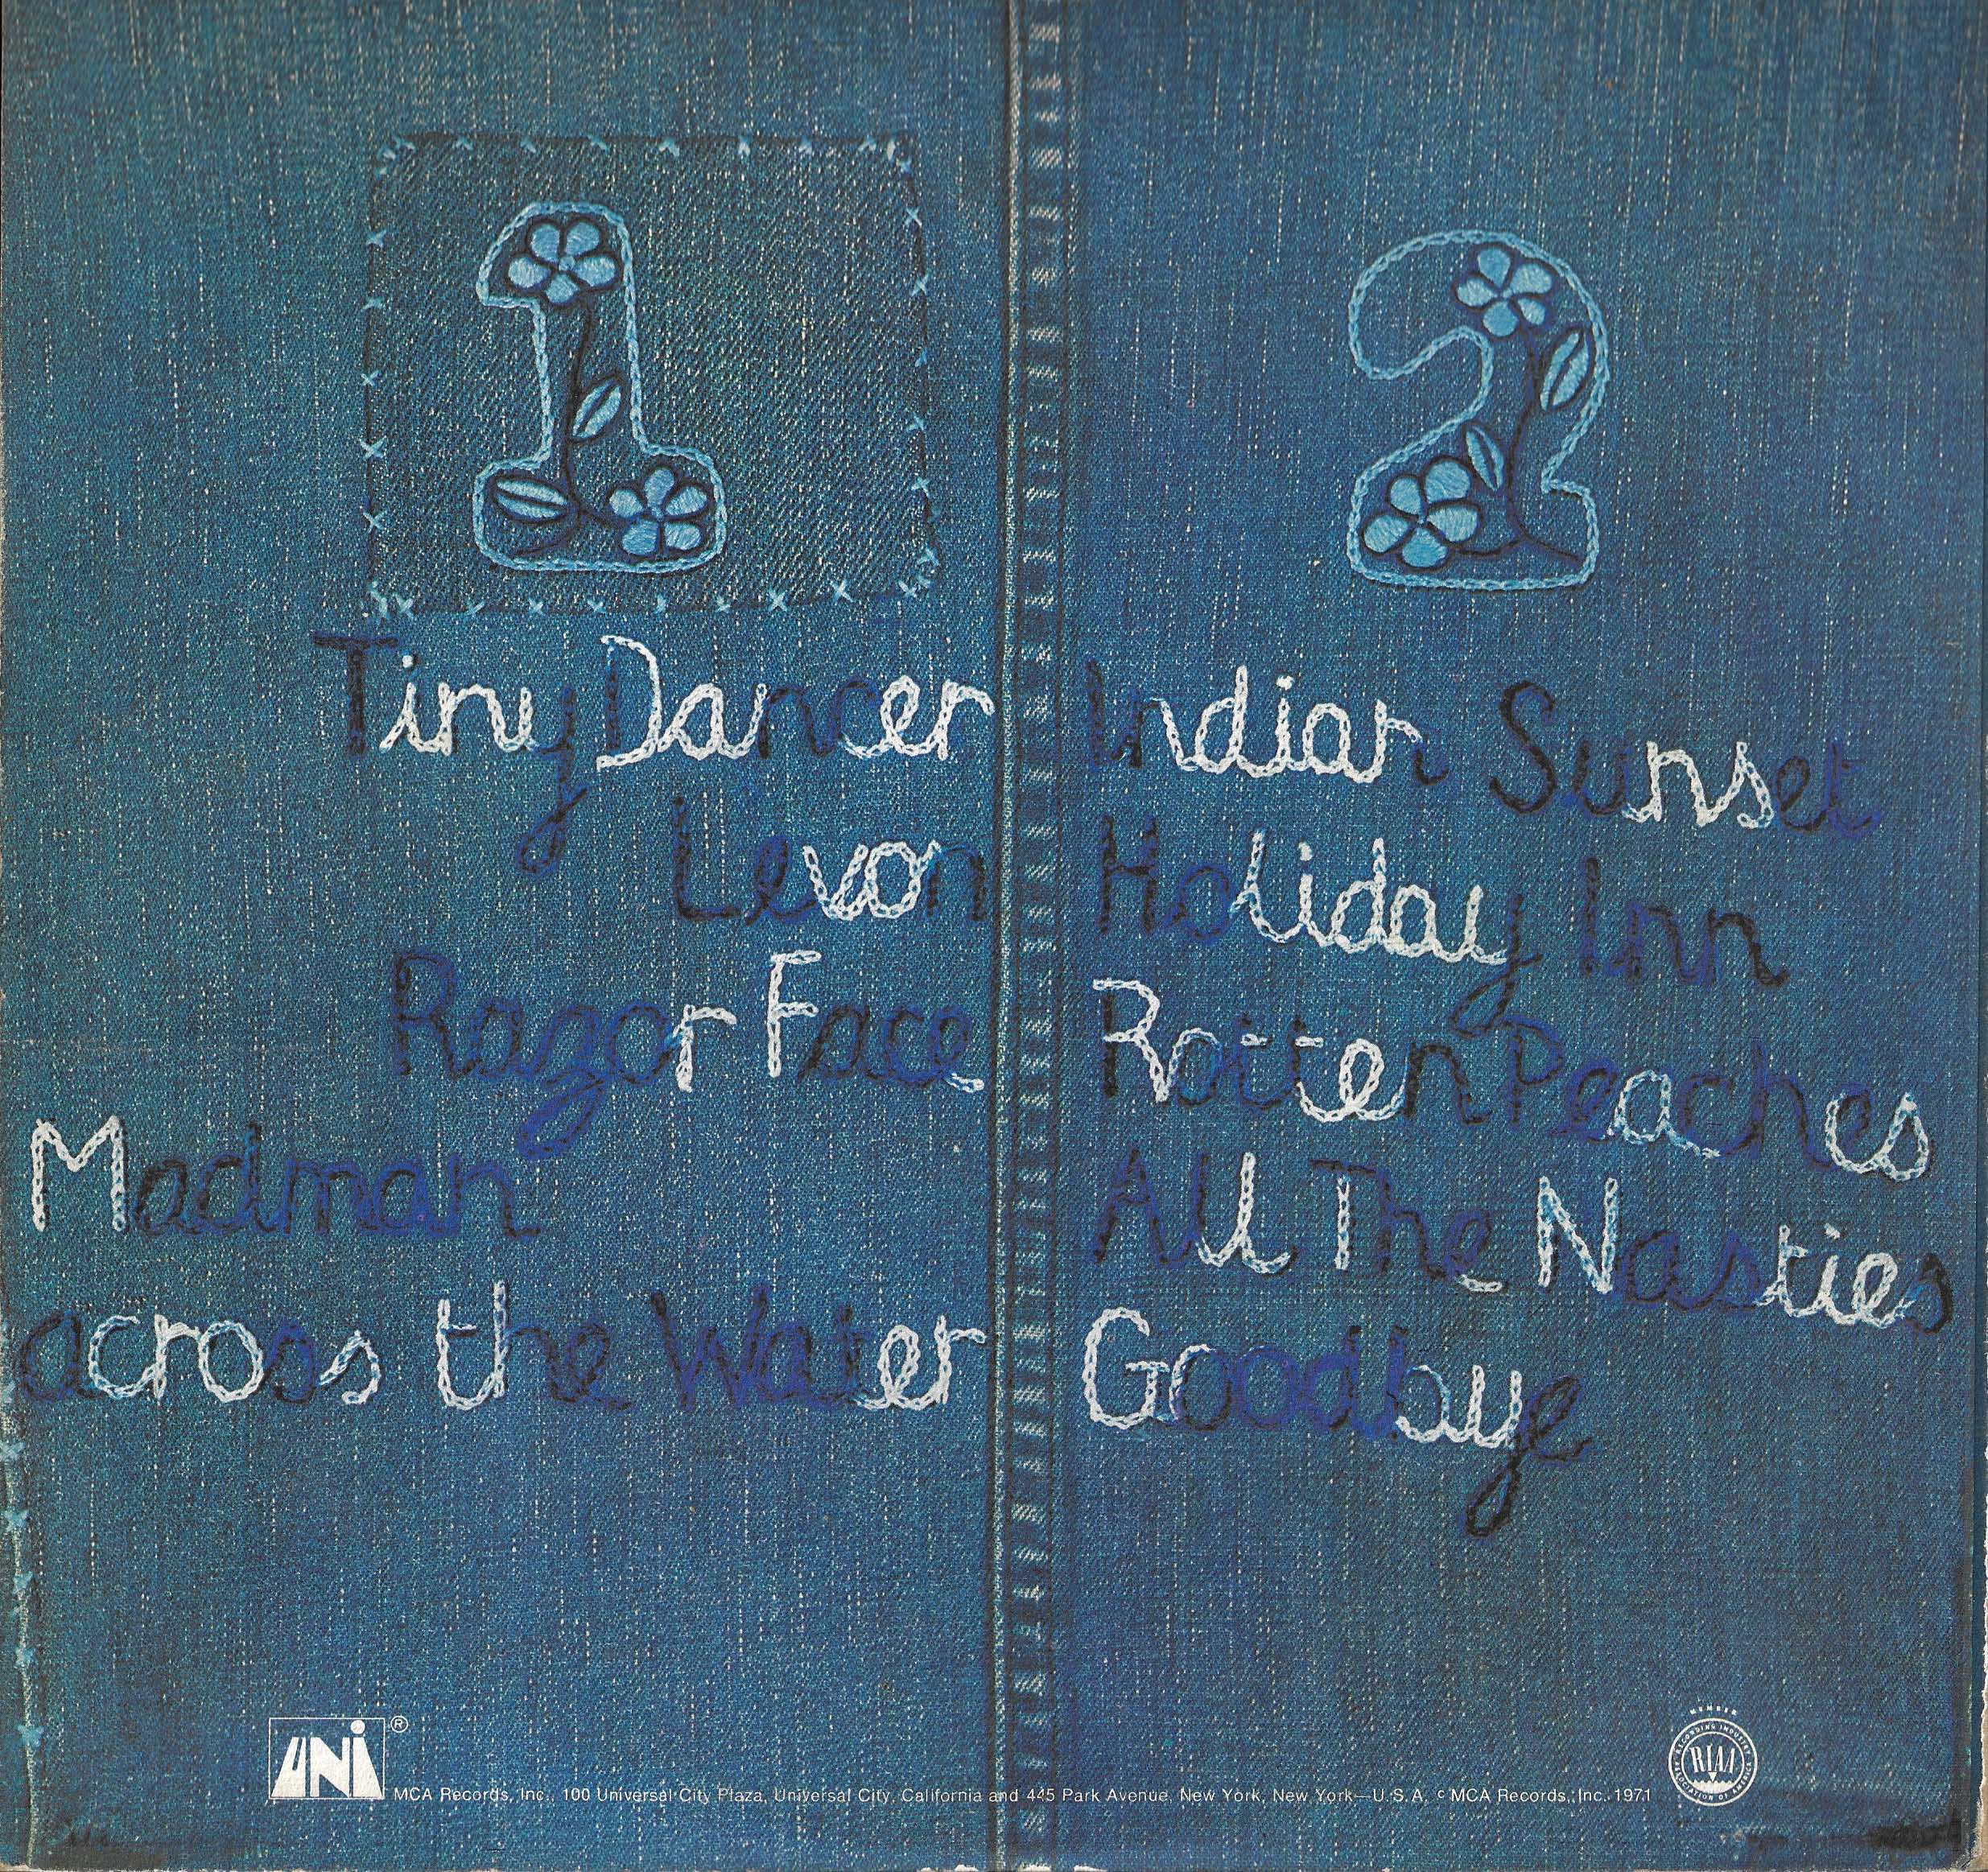 1
Tiny Dancer
Levon
Razor Face
Madman
across the Water
2
Indian Sunset
Holiday Inn
Rotten Peaches
All The Nasties
Goodbye
UNI ®
MCA Records, Inc., 100 Universal City Plaza, Universal City, California and 445 Park Avenue, New York, New York—U.S.A. © MCA Records, Inc. 1971
MEMBER
RECORDING INDUSTRY ASSOCIATION OF AMERICA
RIAA